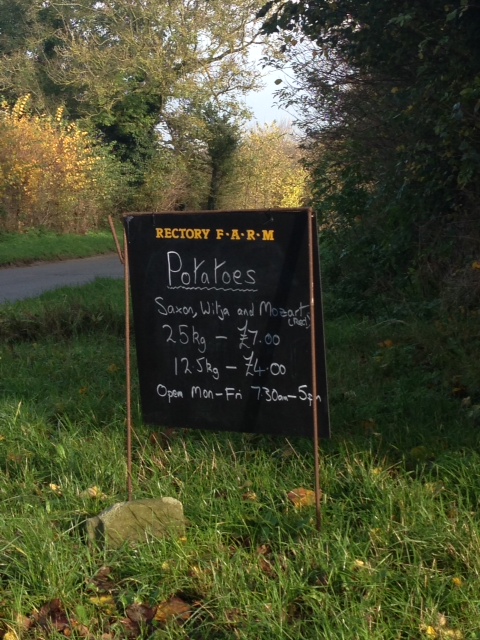 RECTORY F·A·R·M
Potatoes
Saxon, Wilja and Mozart
(Reds)
25kg - £7.00
12.5kg - £4.00
Open Mon-Fri 7.30am-5pm